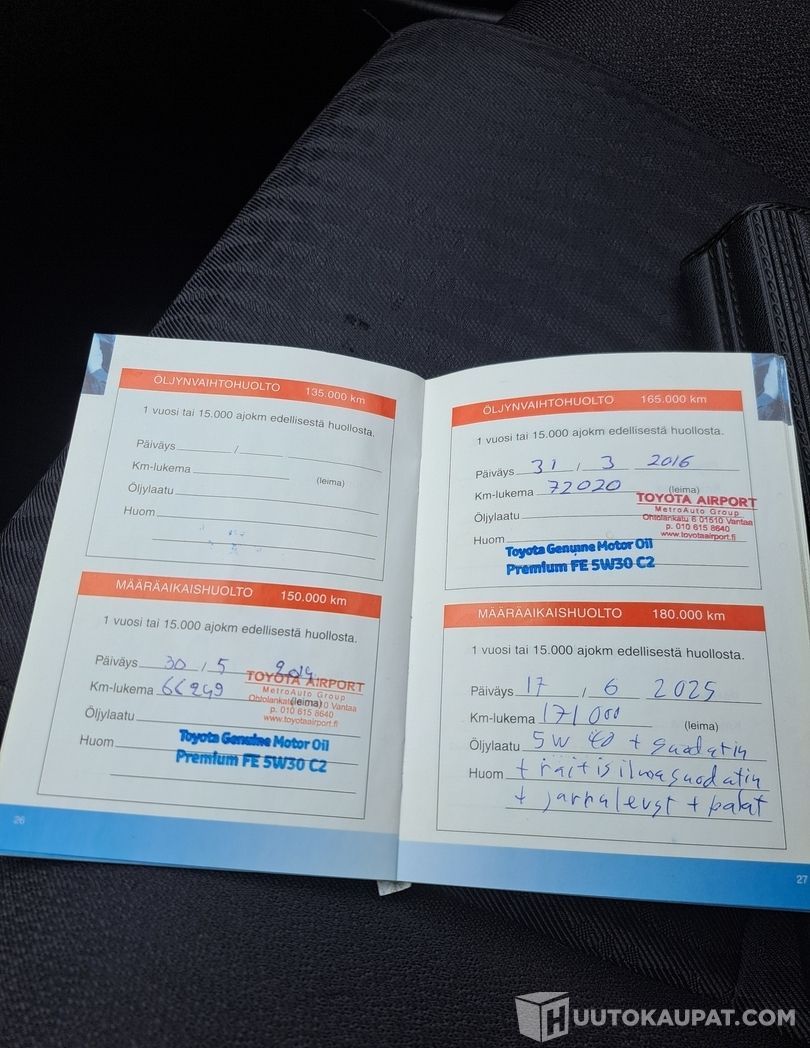 ÖLJYNVAIHTOHUOLTO 135.000 km
1 vuosi tai 15.000 ajokm edellisestä huollosta.
Päiväys / 
Km-lukema
(leima)
Öljylaatu
Huom
MÄÄRÄAIKAISHUOLTO 150.000 km
1 vuosi tai 15.000 ajokm edellisestä huollosta.
Päiväys 30 / 5 2014
TOYOTA AIRPORT
Km-lukema 66249
MetroAuto Group
(leima)
p. 010 615 8640
www.toyotaairport.fi
Öljylaatu
Toyota Genuine Motor Oil
Huom
Premium FE 5W30 C2
26
ÖLJYNVAIHTOHUOLTO 165.000 km
1 vuosi tai 15.000 ajokm edellisestä huollosta.
Päiväys 31 / 3 2016
Km-lukema 72020
(leima)
TOYOTA AIRPORT
MetroAuto Group
Öljylaatu
Ohtolankatu 6 01510 Vantaa
p. 010 615 8640
www.toyotaairport.fi
Huom
Toyota Genuine Motor Oil
Premium FE 5W30 C2
MÄÄRÄAIKAISHUOLTO 180.000 km
1 vuosi tai 15.000 ajokm edellisestä huollosta.
Päiväys 17 / 6 2025
Km-lukema 171000
(leima)
Öljylaatu 5W 40 + suodatin
Huom + raitisilmasuodatin
+ jarrulevyt + palat
27
HUUTOKAUPAT.COM